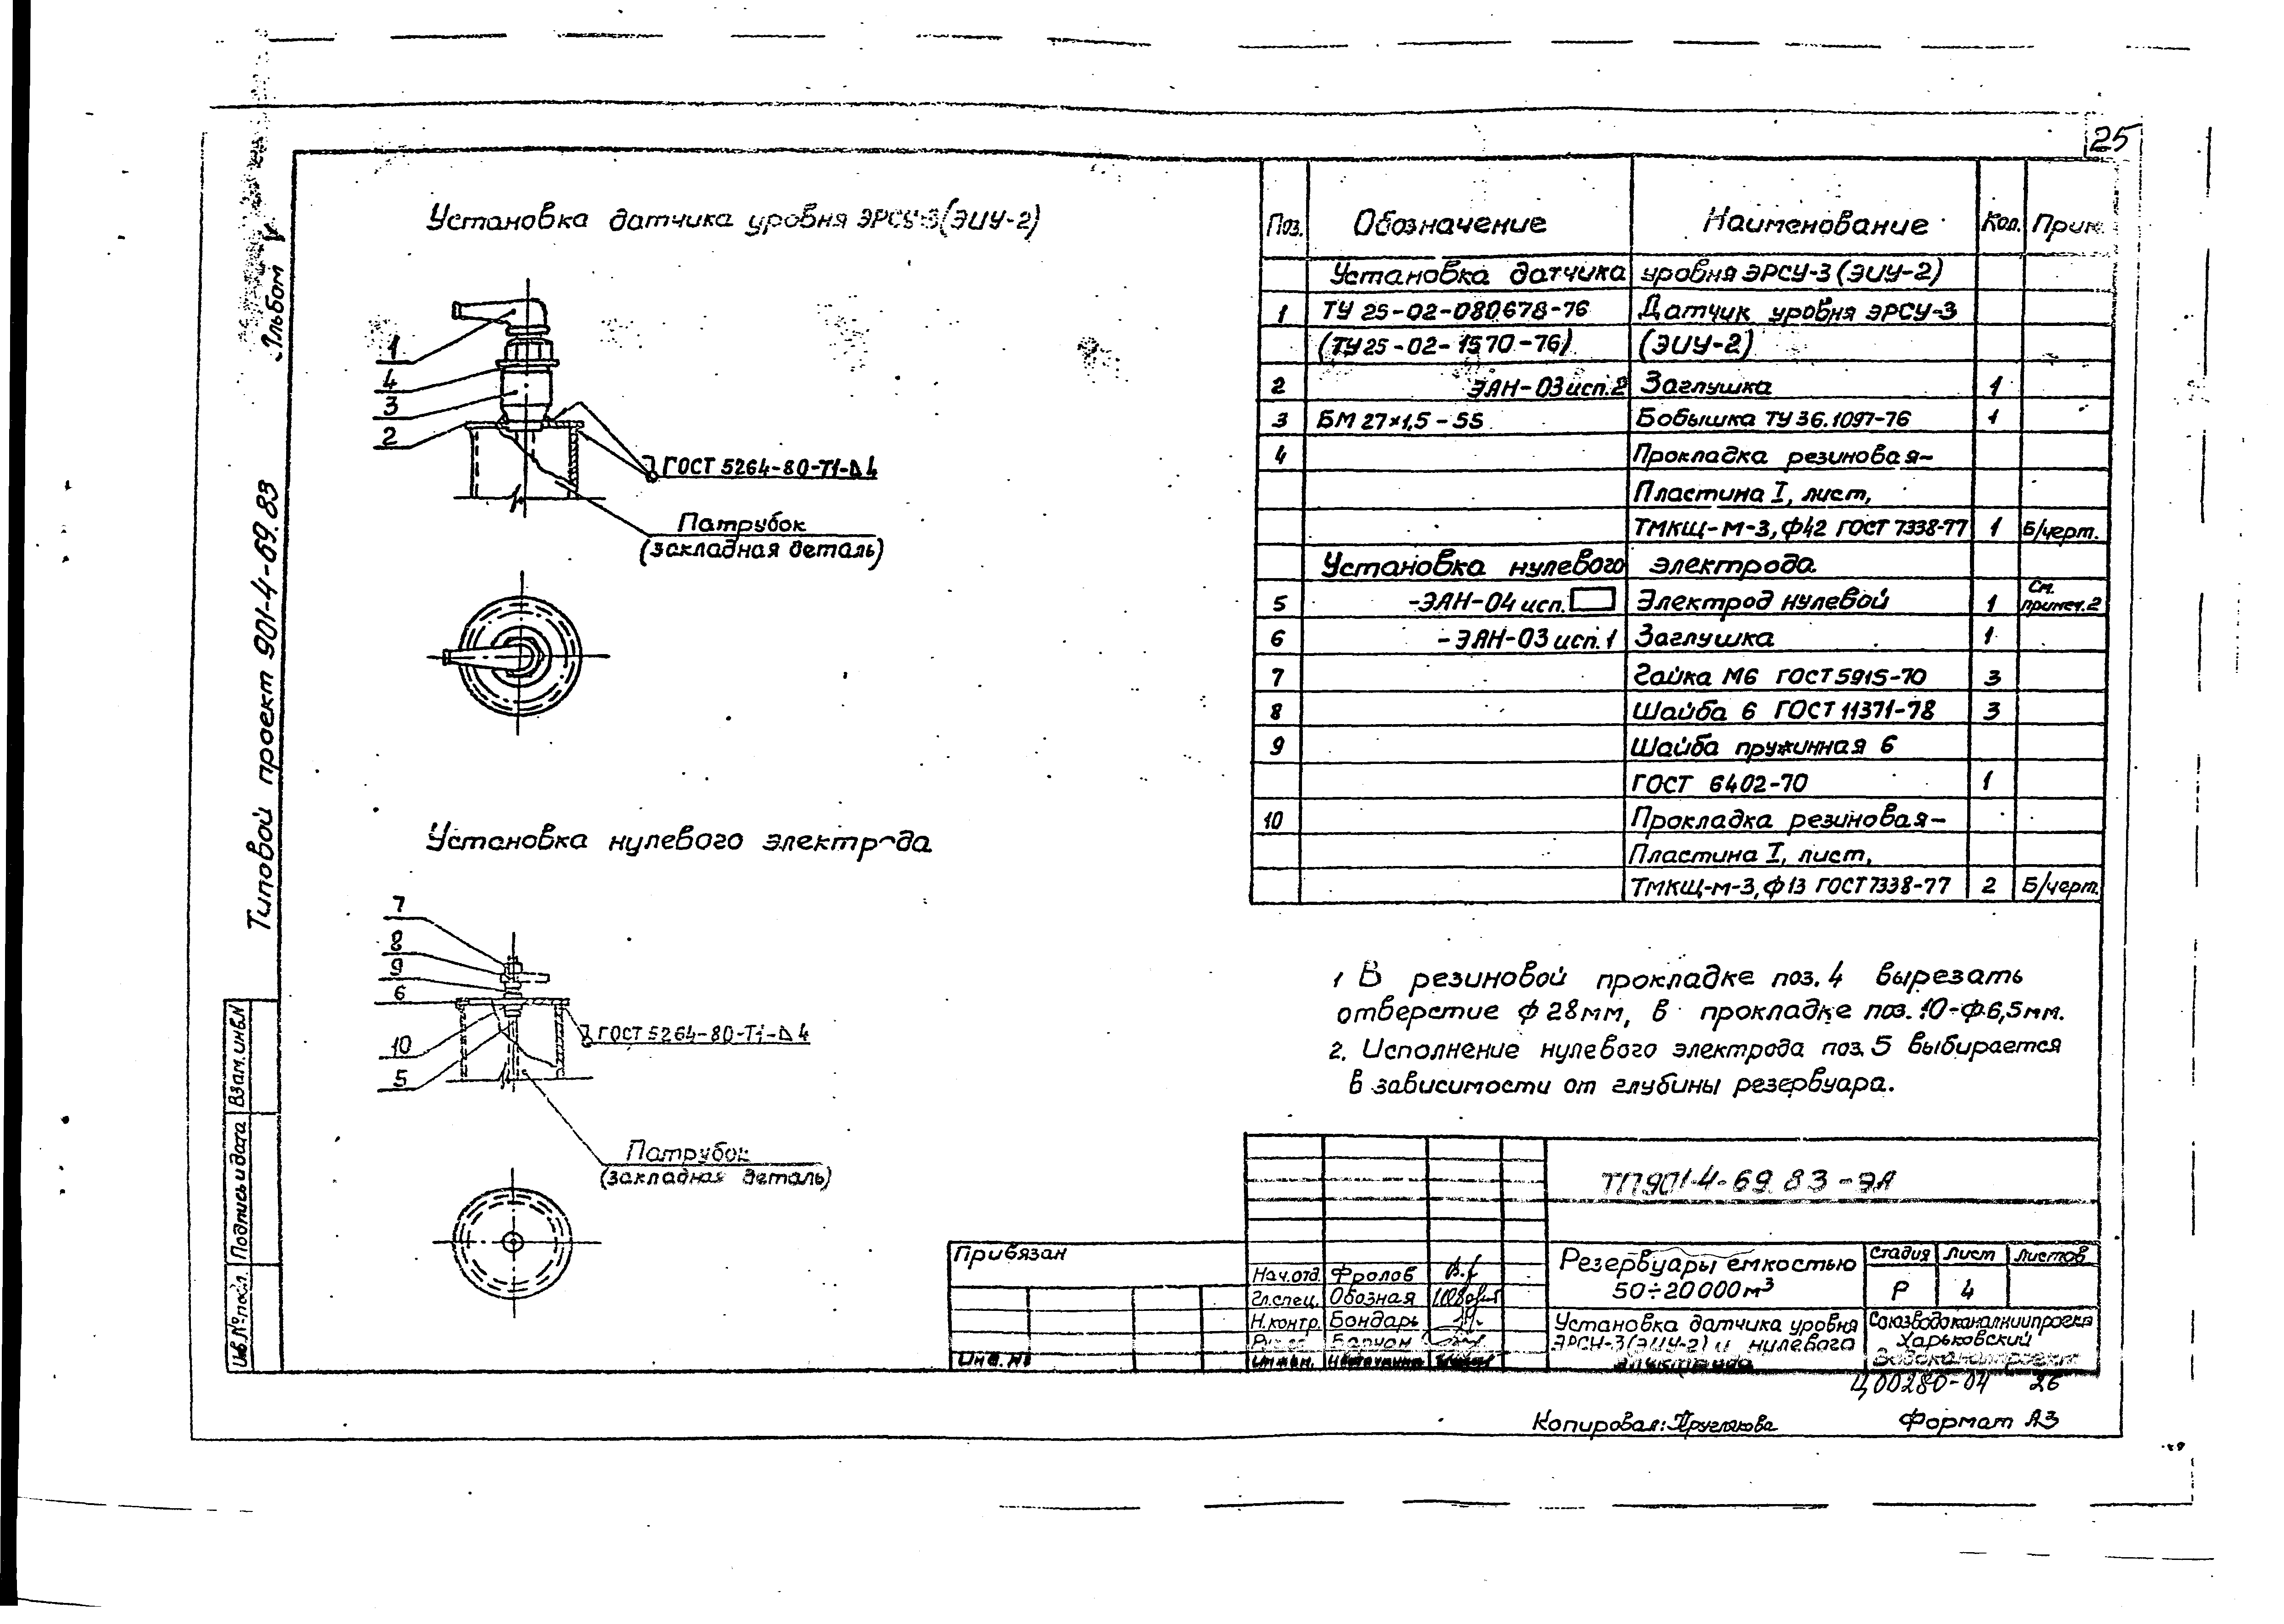 25
Альбом V
Типовой проект 901-4-69.83
Взам.инв.N
Подпись и дата
Инв.№ посл.
Установка датчика уровня ЭРСУ-3(ЭИУ-2)
1
4
3
2
ГОСТ 5264-80-Т1-⊿4
Патрубок
(закладная деталь)
Установка нулевого электрода
7
8
9
6
10
5
ГОСТ 5264-80-Т1-⊿4
Патрубок
(закладная деталь)
Поз. Обозначение Наименование Кол. Прим.
Установка датчика уровня ЭРСУ-3 (ЭИУ-2)
1 ТУ 25-02-080678-76 Датчик уровня ЭРСУ-3
(ТУ25-02-1570-76) (ЭИУ-2)
2 ЭАН-03 исп.2 Заглушка 1
3 БМ 27×1,5-55 Бобышка ТУ 36.1097-76 1
4 Прокладка резиновая-
Пластина I, лист,
ТМКЩ-М-3, ф42 ГОСТ 7338-77 1 Б/черт.
Установка нулевого электрода
5 -ЭАН-04 исп. Электрод нулевой 1 См. примеч.2
6 -ЭАН-03 исп.1 Заглушка 1
7 Гайка М6 ГОСТ 5915-70 3
8 Шайба 6 ГОСТ 11371-78 3
9 Шайба пружинная 6
ГОСТ 6402-70 1
10 Прокладка резиновая-
Пластина I, лист,
ТМКЩ-м-3, ф13 ГОСТ 7338-77 2 Б/черт.
1 В резиновой прокладке поз. 4 вырезать
отверстие ф 28мм, в прокладке поз. 10-ф.6,5мм.
2. Исполнение нулевого электрода поз. 5 выбирается
в зависимости от глубины резервуара.
ТП901-4-69.83-ЭА
Привязан
Инв. №
Нач.отд. Фролов
Гл.спец. Обозная
Н.контр. Бондарь
Инжен.
Резервуары емкостью
50÷20000м³
Стадия Лист Листов
Р 4
Установка датчика уровня
ЭРСУ-3(ЭИУ-2) и нулевого
электрода
Союзводоканалниипроект
Харьковский
Водоканалпроект
Ц00280-04 26
Копировал: Круглякова
Формат А3